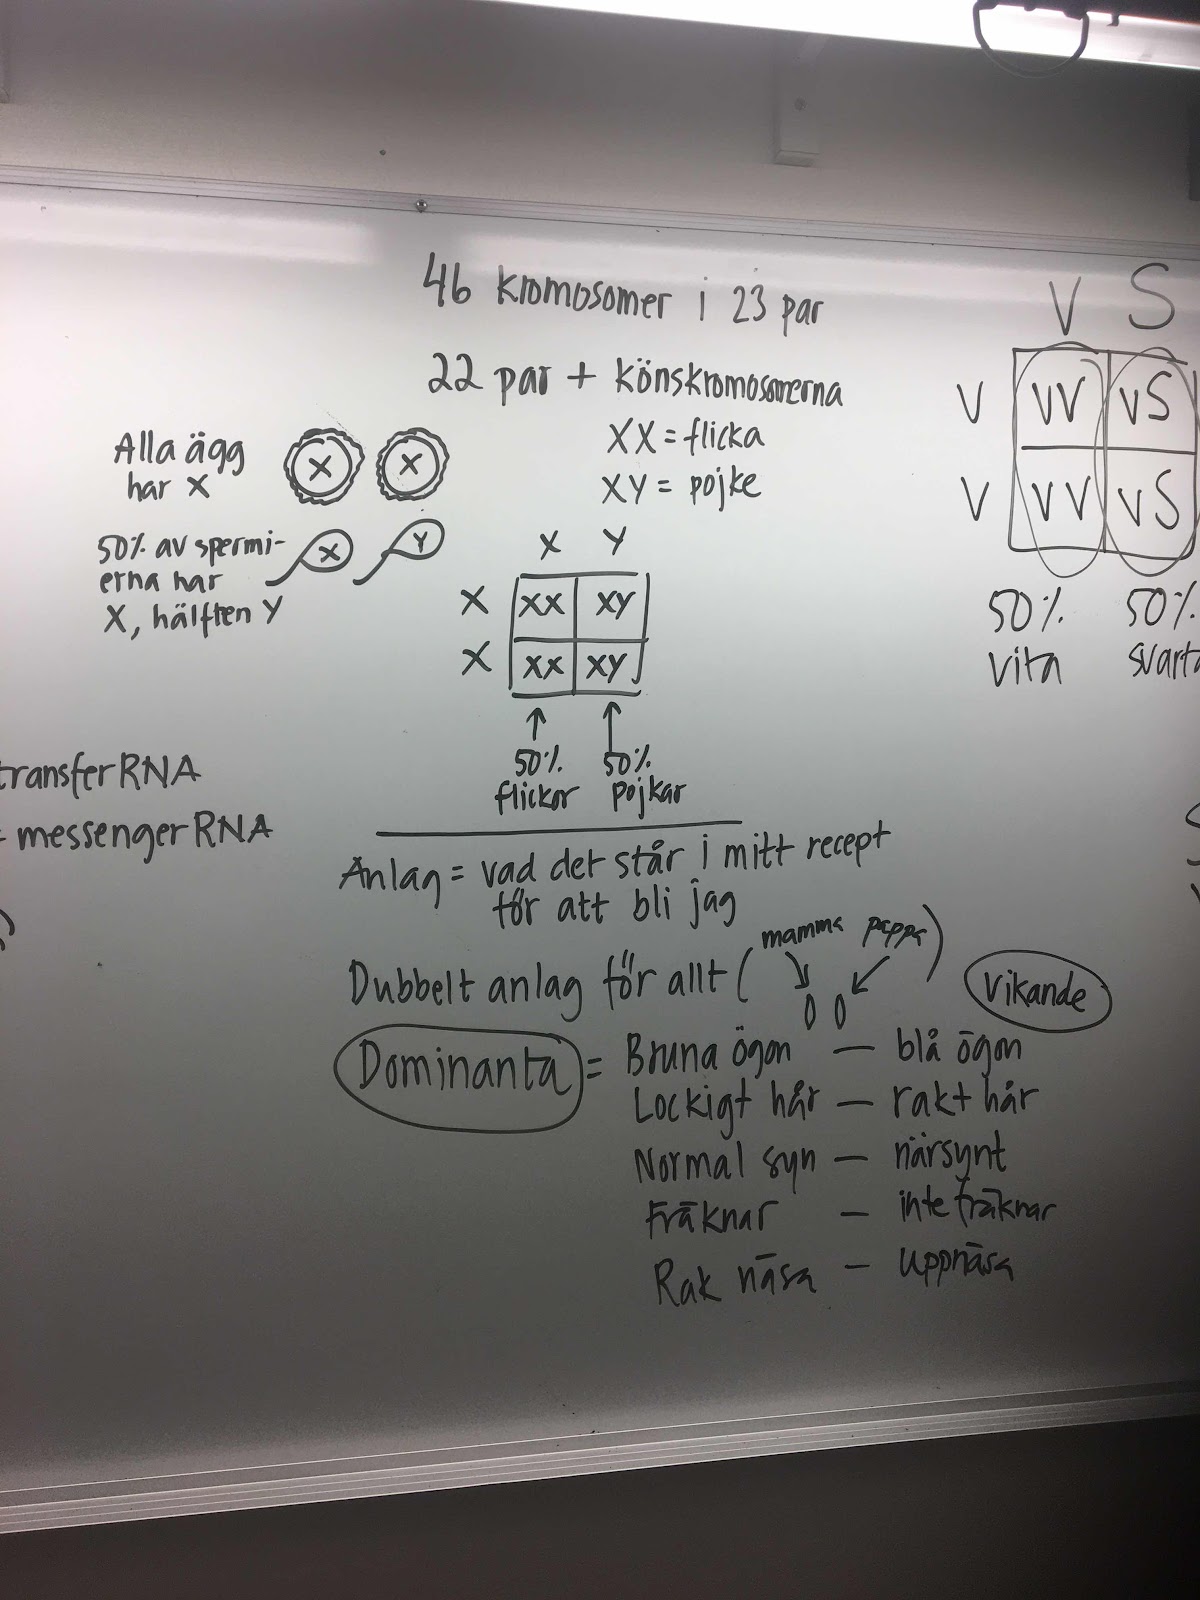 46 kromosomer i 23 par
22 par + könskromosomerna
XX = flicka
XY = pojke
Alla ägg
har X
X X
50% av spermi-
erna har
X, hälften Y
X Y
X Y
X XX XY
X XX XY
50% 50%
flickor pojkar
V S
V VV VS
V VV VS
50% 50%
vita svarta
transferRNA
messengerRNA
Anlag = vad det står i mitt recept
för att bli jag
mamma pappa
Dubbelt anlag för allt ( )
Vikande
Dominanta = Bruna ögon — blå ögon
Lockigt hår — rakt hår
Normal syn — närsynt
Fräknar — inte fräknar
Rak näsa — uppnäsa